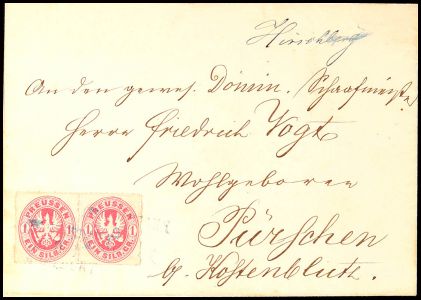 Hirschberg
An den gewes. Domin. Schaafmeister
Herrn Friedrich Vogt
Wohlgeboren
Pürschen
b/ Kostenbluth.
PREUSSEN PREUSSEN
1 1 1 1
EIN SILB. GR. EIN SILB. GR.